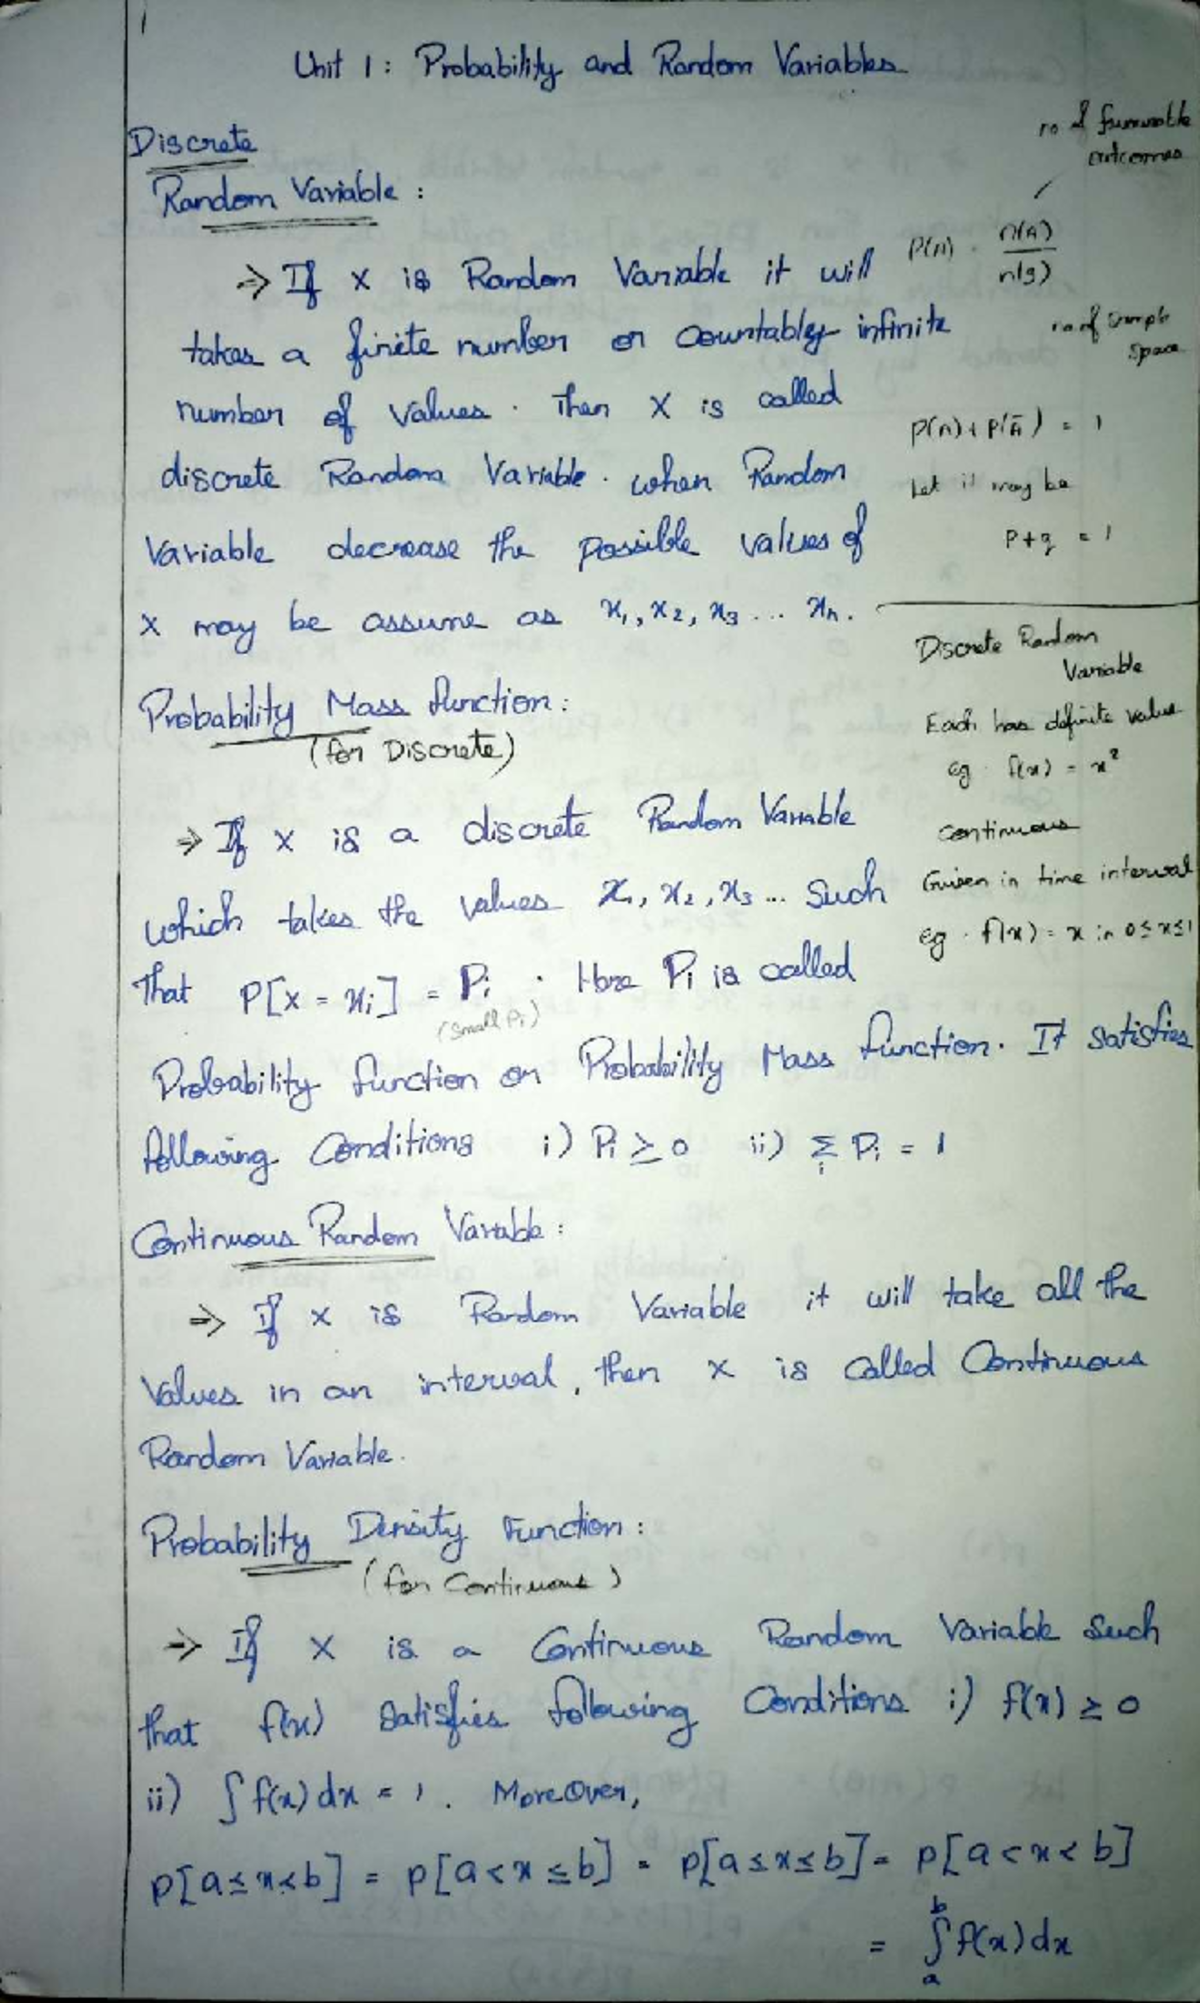 1
Unit 1: Probability and Random Variables
Discrete
Random Variable :
⇒ If X is Random Variable it will
takes a finite number or countably infinite
number of values. Then X is called
discrete Random Variable. when Random
Variable decrease the possible values of
X may be assume as x₁, x₂, x₃ ... xₙ.
no of favourable
outcomes
P(A) = n(A)/n(S)
no. of sample
space
P(A) + P(Ā) = 1
Let it may be
P+q = 1
Discrete Random
Variable
Each has definite value
eg. f(x) = x²
continuous
Given in time interval
eg. f(x) = x in 0≤x≤1
Probability Mass function:
(for Discrete)
⇒ If X is a discrete Random Variable
which takes the values x₁, x₂, x₃ ... Such
that P[X = xᵢ] = Pᵢ . Here Pᵢ is called
(Small Pᵢ)
Probability function or Probability Mass function. It satisfies
following Conditions i) Pᵢ ≥ 0 ii) Σᵢ Pᵢ = 1
Continuous Random Variable:
⇒ If X is Random Variable it will take all the
Values in an interval, then X is called Continuous
Random Variable.
Probability Density Function:
(for Continuous)
⇒ If X is a Continuous Random Variable Such
that f(x) Satisfies following Conditions i) f(x) ≥ 0
ii) ∫ f(x) dx = 1. Moreover,
P[a≤x<b] = P[a<x≤b] = P[a≤x≤b] = P[a<x<b]
= ∫ₐᵇ f(x) dx